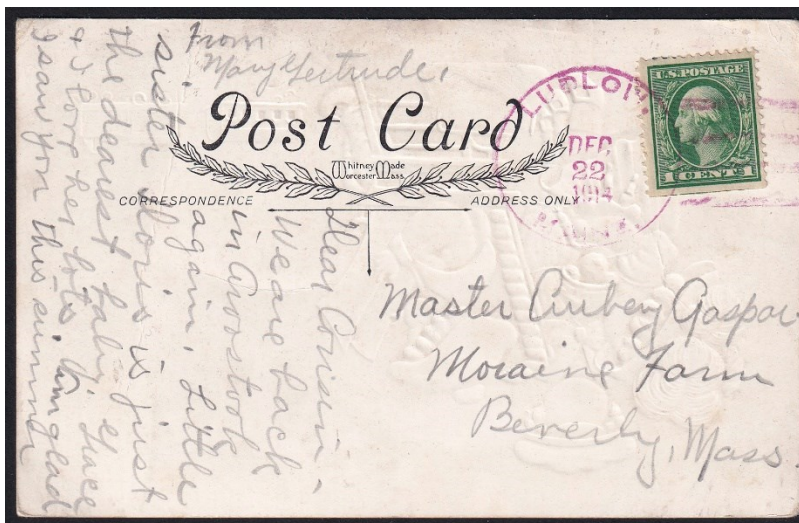 From
Mary Gertrude,
Post Card
Whitney Made
Worcester Mass.
CORRESPONDENCE
ADDRESS ONLY
LUDLOW
DEC
22
1914
U.S. POSTAGE
1 CENT 1
Dear Cousin,
We are back
in Aroostook
again. Little
sister Doris is just
the dearest baby
& I love her lots
I saw you this summer
Master Aubery Gaspar
Moraine Farm
Beverly, Mass.